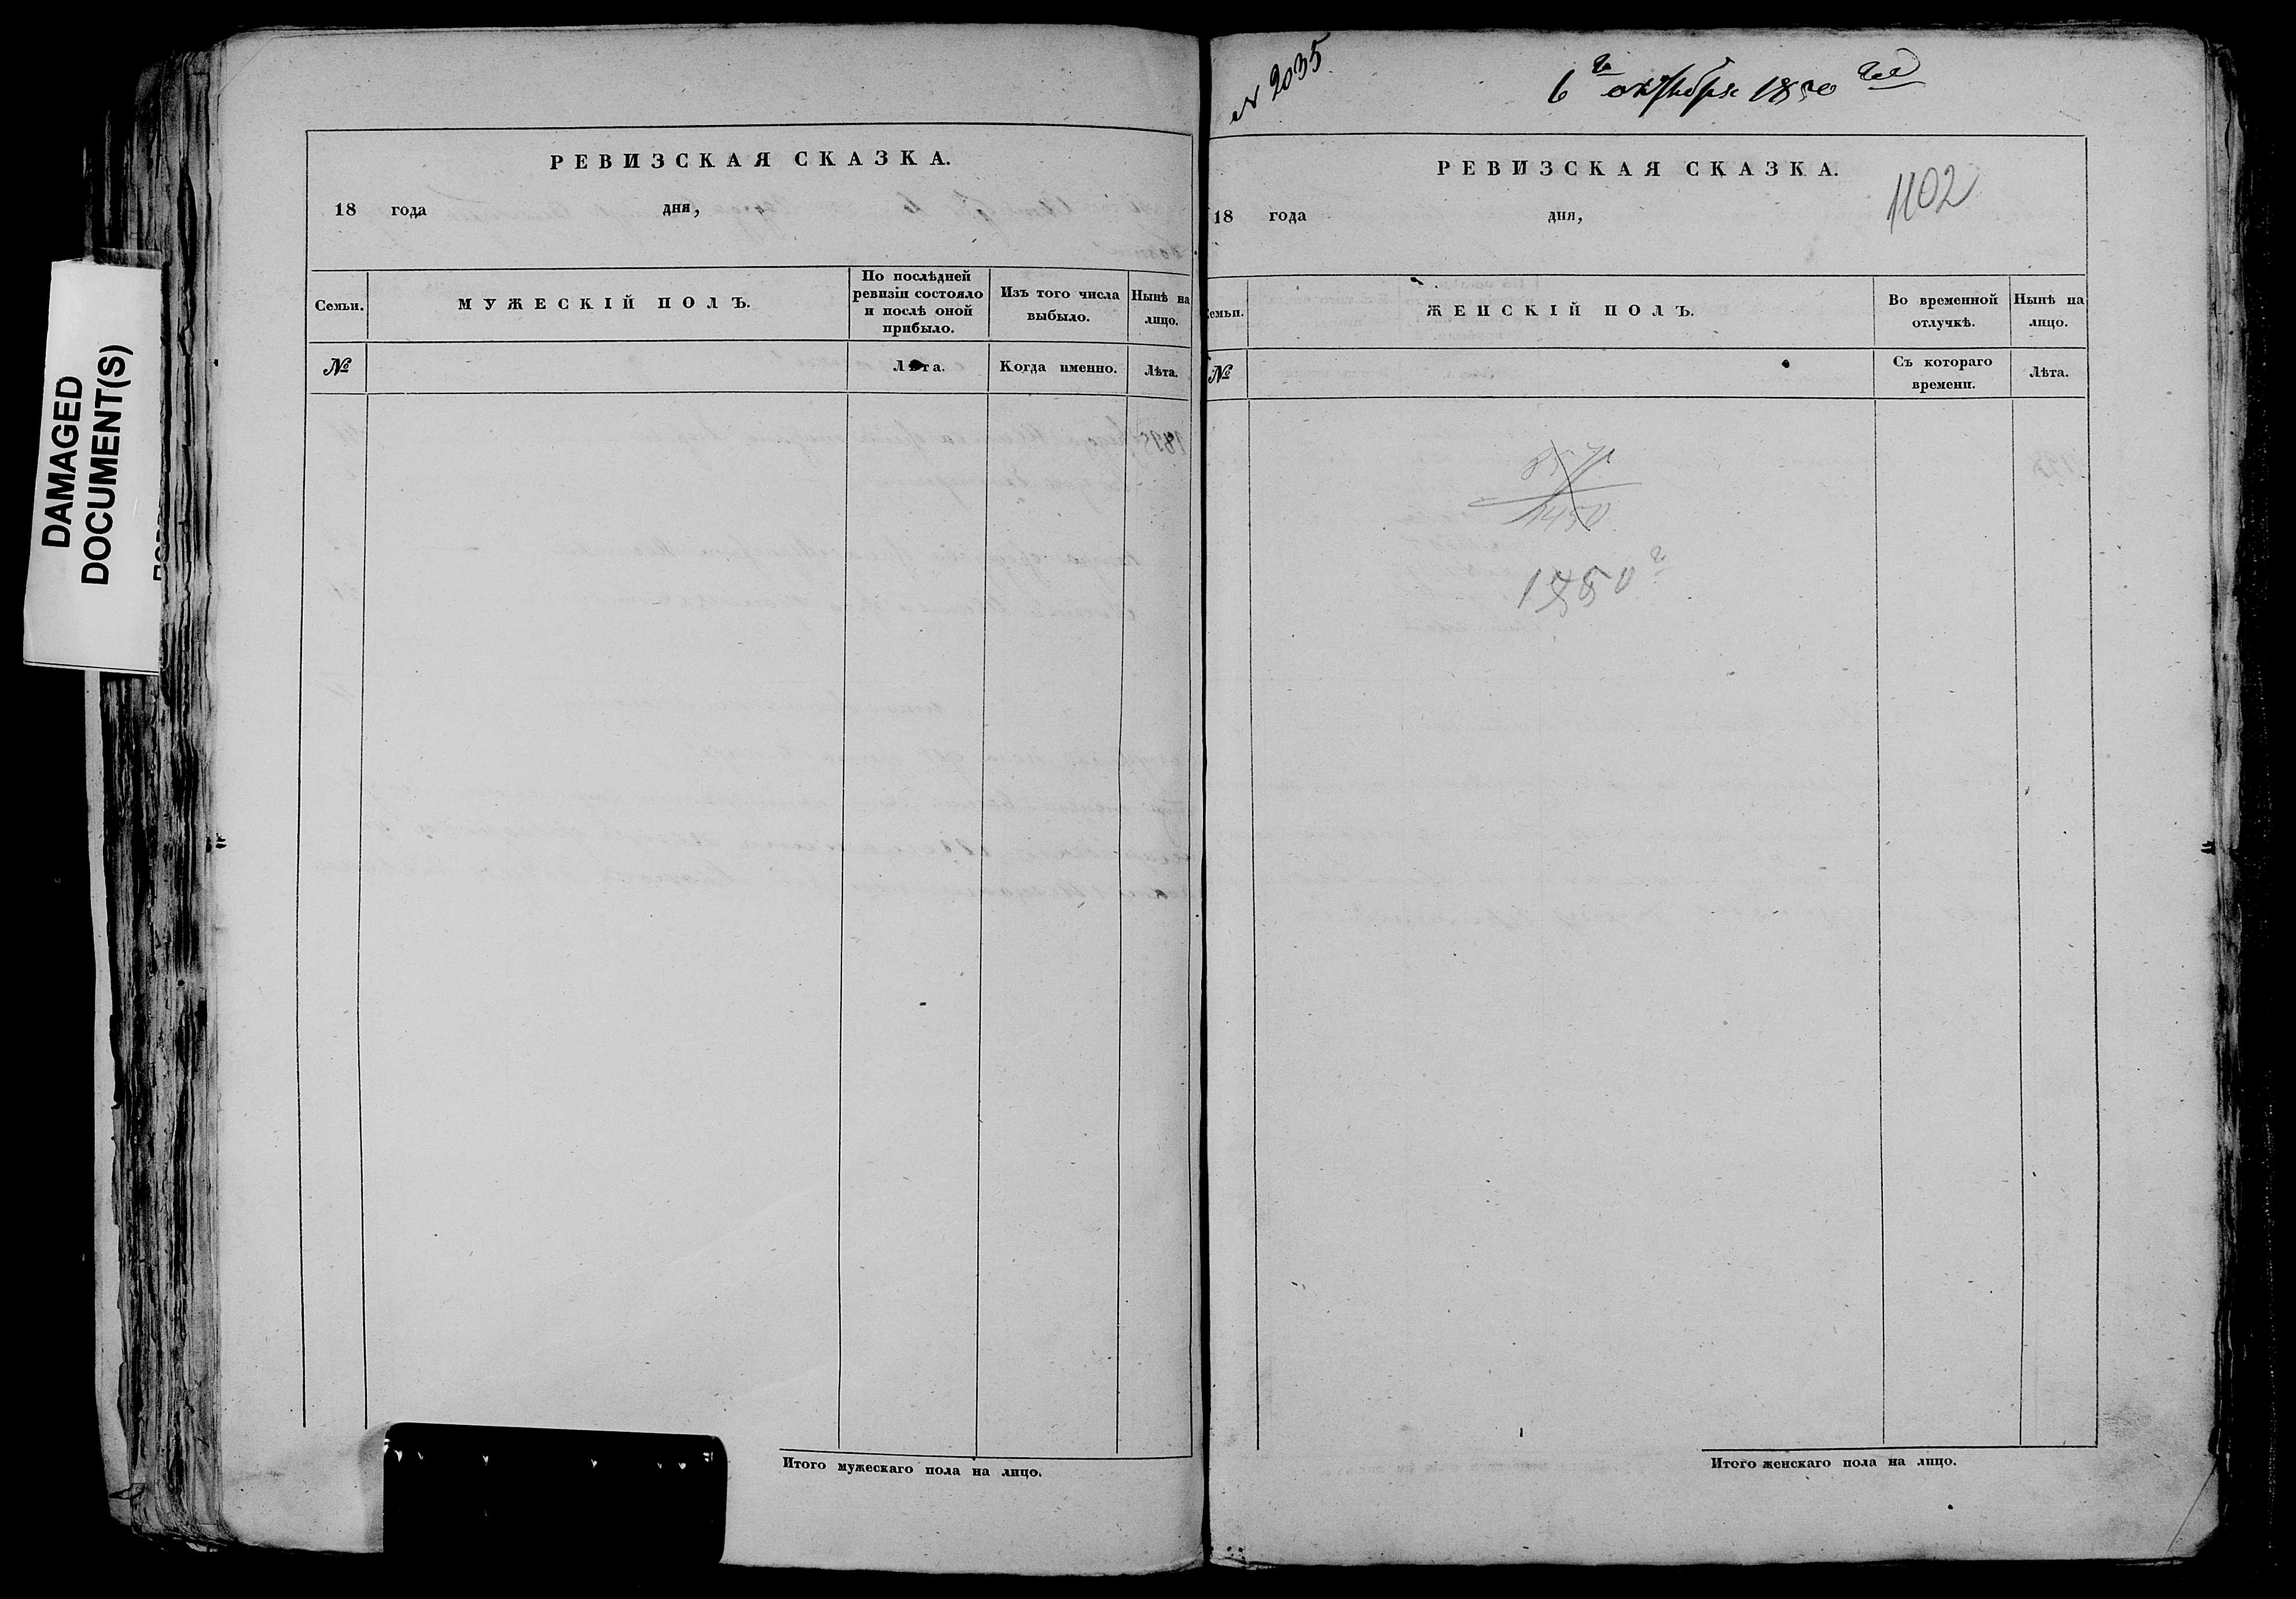 DAMAGED
DOCUMENT(S)
РЕВИЗСКАЯ СКАЗКА.
18 года дня,
Семьи.
МУЖЕСКІЙ ПОЛЪ.
По послѣдней
ревизіи состояло
и послѣ оной
прибыло.
Изъ того числа
выбыло.
Нынѣ на
лицо.
№
Лѣта.
Когда именно.
Лѣта.
Итого мужескаго пола на лицо.
№ 2035
6го октября 1850 года
РЕВИЗСКАЯ СКАЗКА.
1102
18 года дня,
емьи.
ЖЕНСКІЙ ПОЛЪ.
Во временной
отлучкѣ.
Нынѣ на
лицо.
№
Съ котораго
времени.
Лѣта.
1850 г
Итого женскаго пола на лицо.